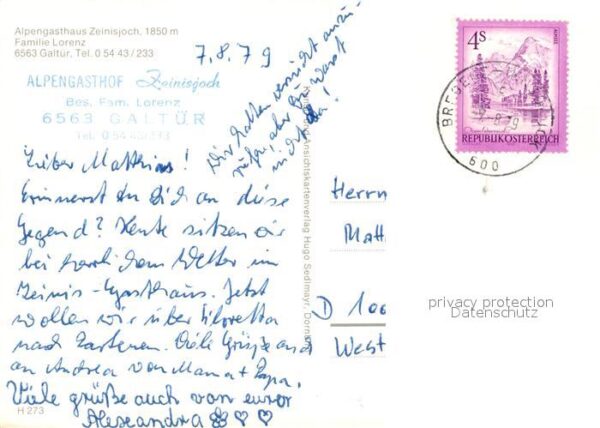 Alpengasthaus Zeinisjoch, 1850 m
Familie Lorenz
6563 Galtür, Tel. 0 54 43 / 233
7.8.79
ALPENGASTHOF Zeinisjoch
Bes. Fam. Lorenz
6563 GALTÜR
Tel. 0 54 43/233
Wir hatten versucht anzu-
rufen, aber Du warst
nicht da!
Lieber Matthias!
Erinnerst Du Dich an diese
Gegend? Heute sitzen wir
bei herrlichem Wetter im
Zeinis-Gasthaus. Jetzt
wollen wir über Silvretta
nach Partenen. Viele Grüße auch
an Andrea von Mama + Papa.
Viele grüße auch von eurer
Alexandra
H 273
Ansichtskartenverlag Hugo Sedlmayr, Dornbirn
4S
REPUBLIK ÖSTERREICH
BREGENZ
-8.79
600
Herrn
Matt
D 100
West
privacy protection
Datenschutz